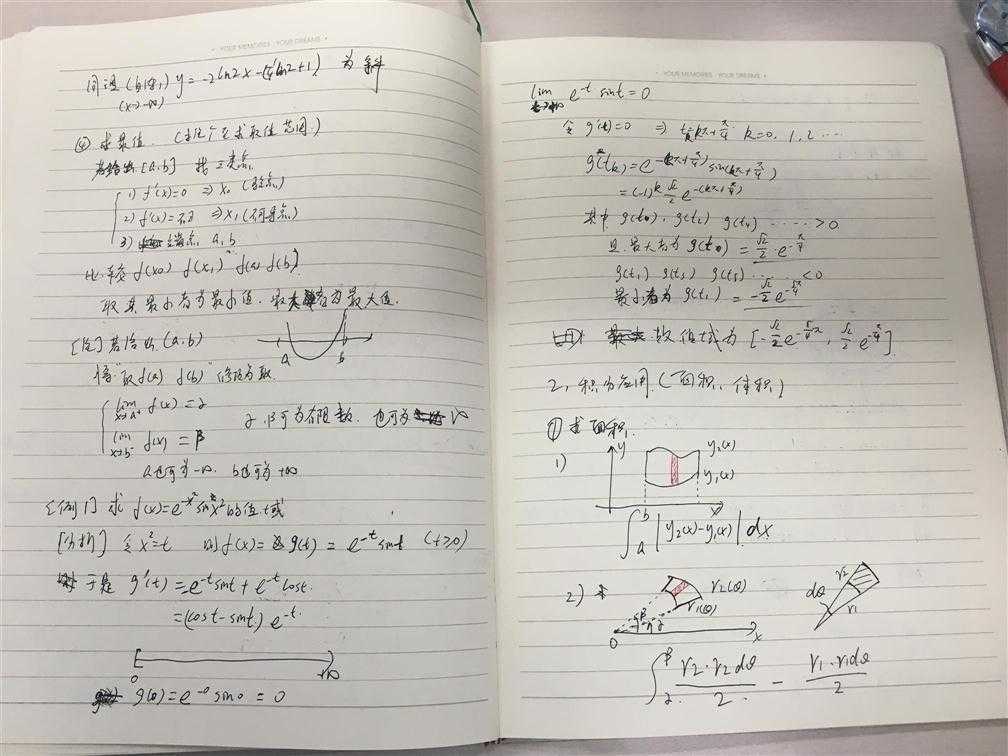 YOUR MEMORIES YOUR DREAMS
同理 (x→-∞) y=-2ln2x-(4ln2+1) 为斜
④ 求最值. (求值域)
若给出 [a,b] 找三类点
1) f'(x)=0 ⇒ x₀ (驻点)
2) f'(x)=不∃ ⇒ x₁ (不可导点)
3) 端点 a, b
比较 f(x₀) f(x₁) f(a) f(b)
取其最小者为最小值. 最大者为最大值.
[注] 若给出 (a,b)
a b
将"取f(a) f(b)"修改为取
lim x→a⁺ f(x)=α
lim x→b⁻ f(x)=β
α β可为有限数, 也可为 ∞
a也可为-∞ b也可为+∞
[例1] 求 f(x)=e^{-x²}sin x² 的值域
[分析] 令 x²=t 则f(x)=g(t)=e^{-t}sint (t≥0)
于是 g'(t)=-e^{-t}sint+e^{-t}cost.
=(cost-sint)e^{-t}
0 +∞
g(0)=e^{-0}sin0=0
YOUR MEMORIES YOUR DREAMS
lim e^{-t}sint=0
令 g'(t)=0 ⇒ t_k=kπ+π/4 k=0,1,2…
g(t_k)=e^{-(kπ+π/4)}sin(kπ+π/4)
=(-1)^k √2/2 e^{-(kπ+π/4)}
其中 g(t₀), g(t₂) g(t₄) …… >0
且最大者为 g(t₀)=√2/2·e^{-π/4}
g(t₁) g(t₃) g(t₅) …… <0
最小者为 g(t₁)=-√2/2 e^{-5π/4}
故值域为 [-√2/2 e^{-5/4π}, √2/2 e^{-π/4}]
2, 积分应用 (面积, 体积)
① 求面积
1) y y₂(x)
y₁(x)
x
∫_a^b |y₂(x)-y₁(x)|dx
2) r₂(θ) r₁(θ) β α 0 x dθ r₂ r₁
∫_α^β r₂·r₂dθ/2 - r₁·r₁dθ/2